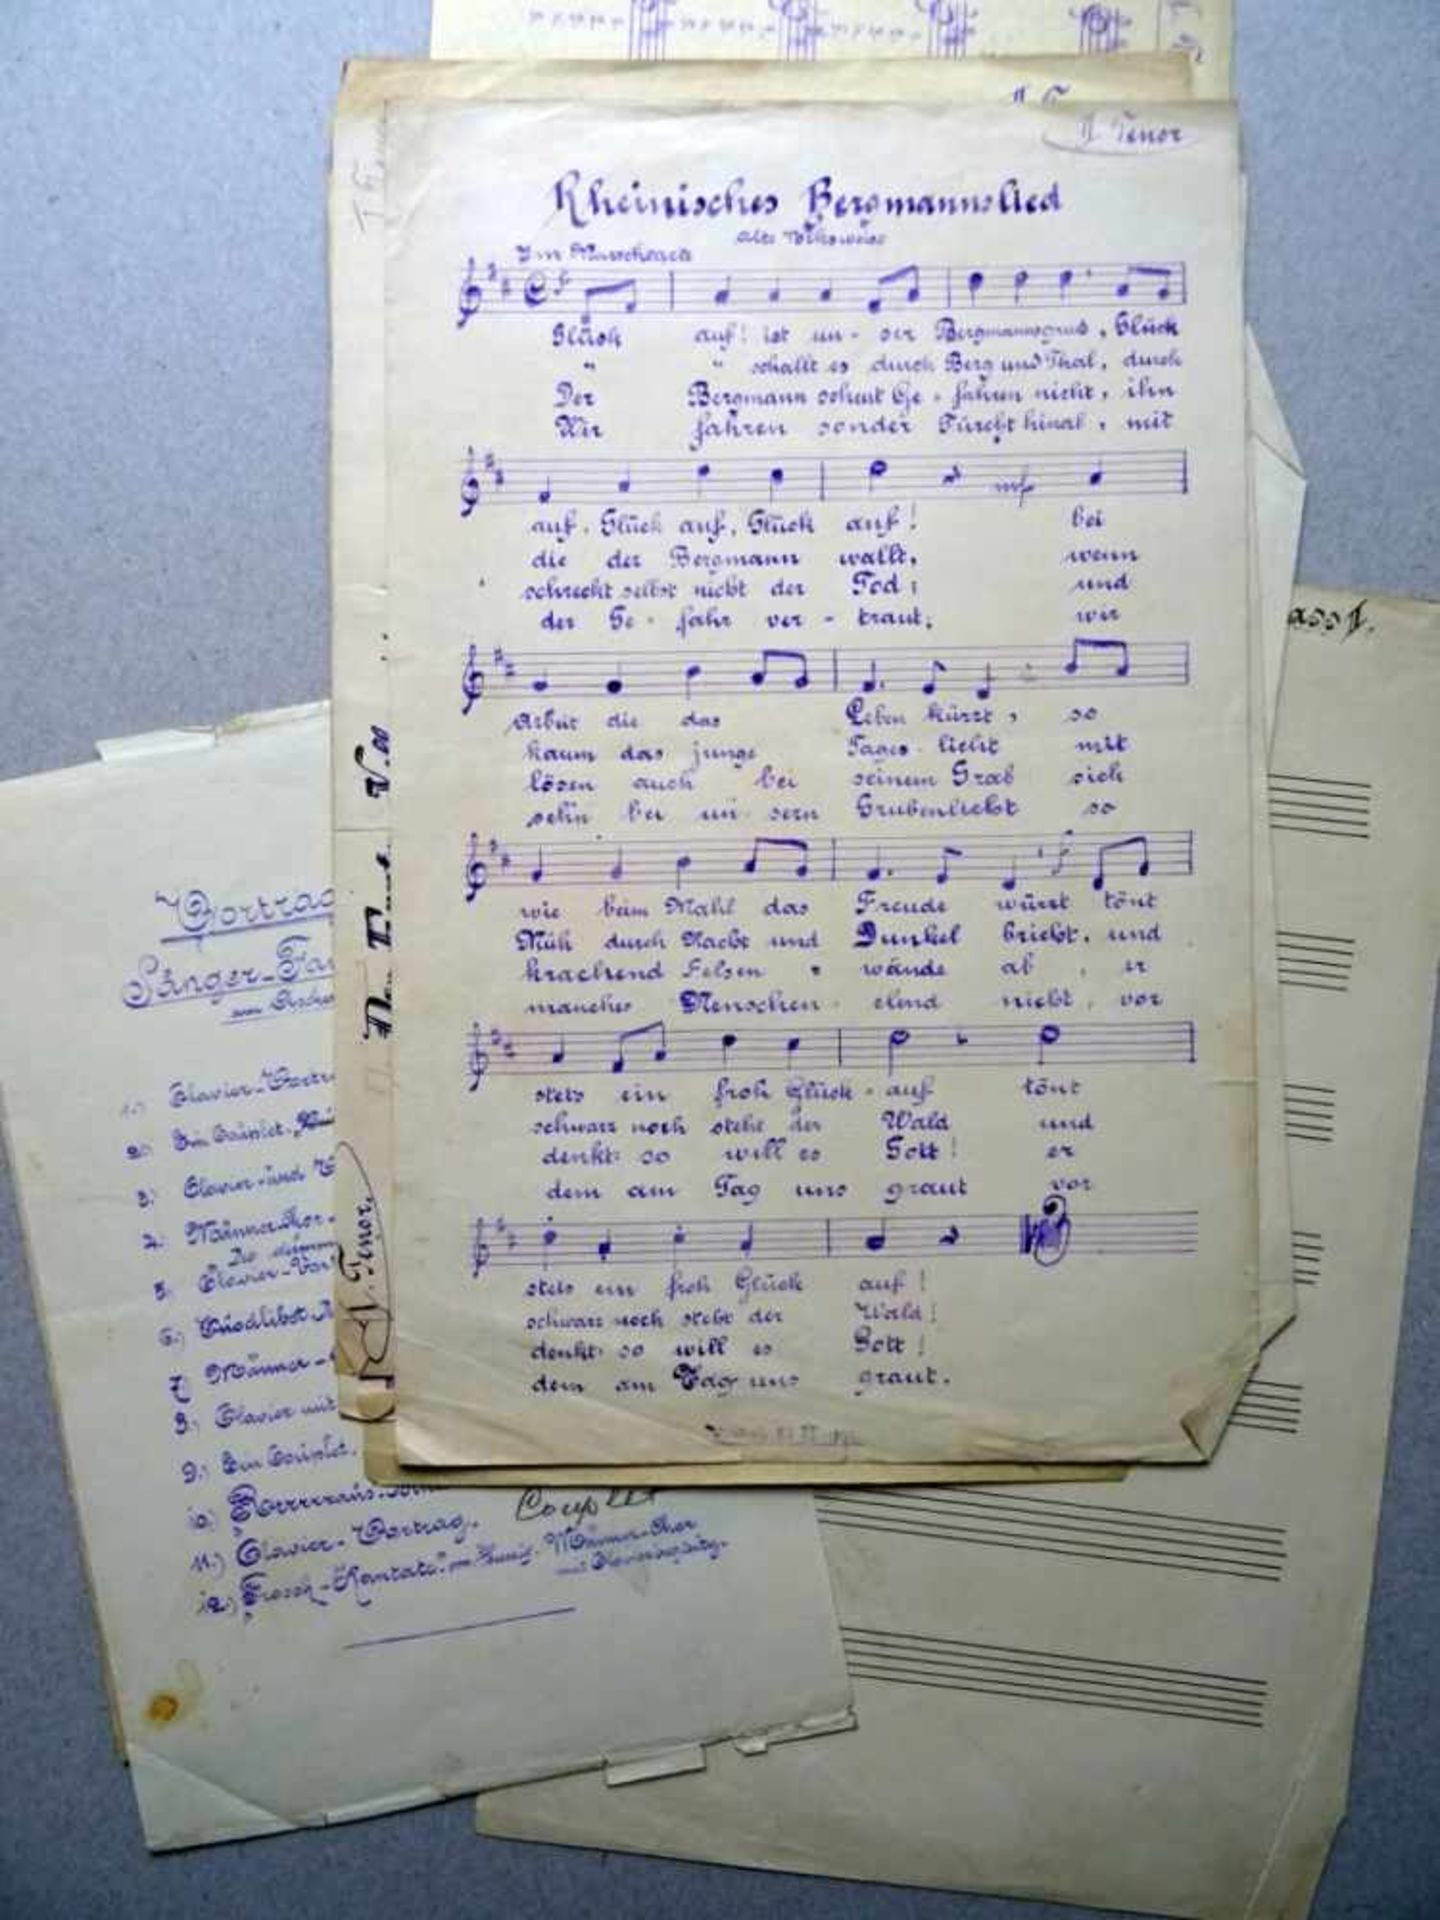 II. Tenor
Rheinisches Bergmannslied
Alte Volksweise
Im Marschtakt
Glück auf! ist un- ser Bergmannsgruß, Glück
" " schallt es durch Berg und Thal, durch
Der Bergmann scheut Ge- fahren nicht, ihn
Wir fahren sonder Fürcht hinab, mit
mf
auf, Glück auf, Glück auf! bei
die der Bergmann wallt, wenn
schreckt selbst nicht der Tod; und
der Ge- fahr ver- traut; wir
Arbeit die das Leben kürzt, so
kaum das junge Tages- licht mit
lösen auch bei seinem Grab sich
sehn bei un- sern Grubenlicht so
f
wie beim Mahl das Freude würzt tönt
Müh durch Nacht und Dunkel bricht, und
krachend Felsen- wände ab, er
manches Menschen- elend nicht, vor
stets ein froh Glück- auf tönt
schwarz noch steht der Wald und
denkt: so will es Gott! er
dem am Tag uns graut vor
stets ein froh Glück auf!
schwarz noch steht der Wald!
denkt: so will es Gott!
dem am Tag uns graut.
I. Tenor
ass I.
Vortrag
Sänger-
1.) Clavier-Vortr
2.) Ein Couplet.
3.) Clavier und
4.) Männerchor-
5. Clavier-Vor
6.) Quodlibet.
7.) Männer-
8.) Clavier mit
9.) Ein Couplet.
10.)
11.) Clavier-Vortrag. Couplet
12.) Frosch-Kantate Männer-Chor
mit Clavierbegleitg.